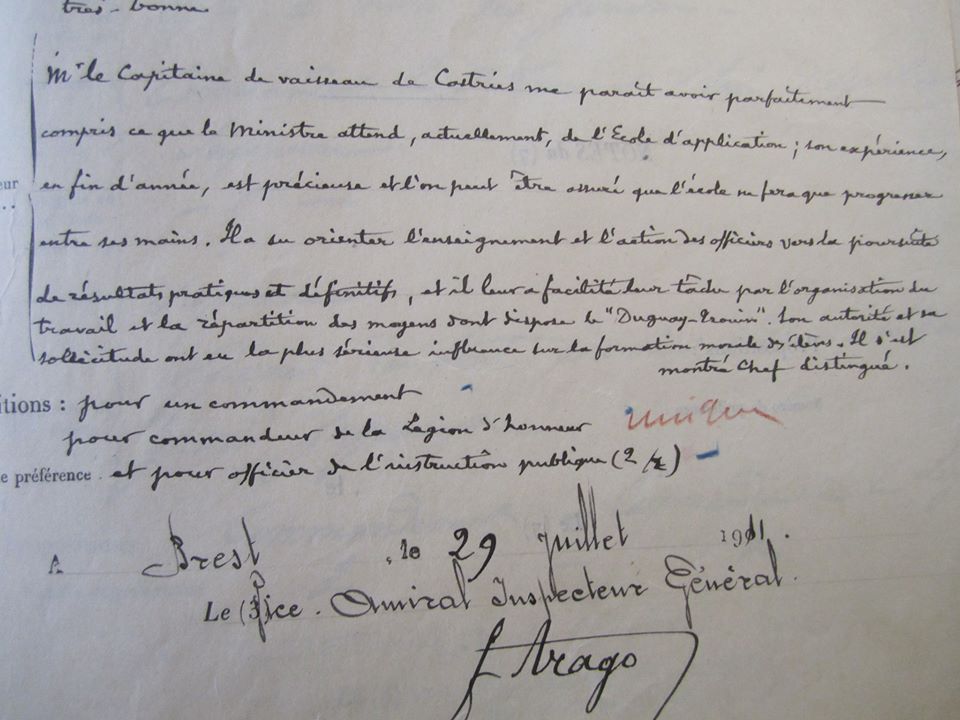 très-bonne
Mr le Capitaine de vaisseau de Castries me parait avoir parfaitement
compris ce que le Ministre attend, actuellement, de l'Ecole d'application ; son expérience,
eur
en fin d'année, est précieuse et l'on peut être assuré que l'école ne fera que progresser
...
entre ses mains. Il a su orienter l'enseignement et l'action des officiers vers la poursuite
de résultats pratiques et définitifs, et il leur a facilité leur tâche par l'organisation du
travail et la répartition des moyens dont dispose le "Duguay-Trouin". Son autorité et sa
sollicitude ont eu la plus sérieuse influence sur la formation morale des élèves. Il s'est
montré Chef distingué.
itions : pour un commandement
pour commandeur de la Légion d'honneur unique
e préférence . et pour officier de l'instruction publique (2/2)
A Brest , le 29 Juillet 1911.
Le (3) Vice-Amiral Inspecteur Général.
Arago